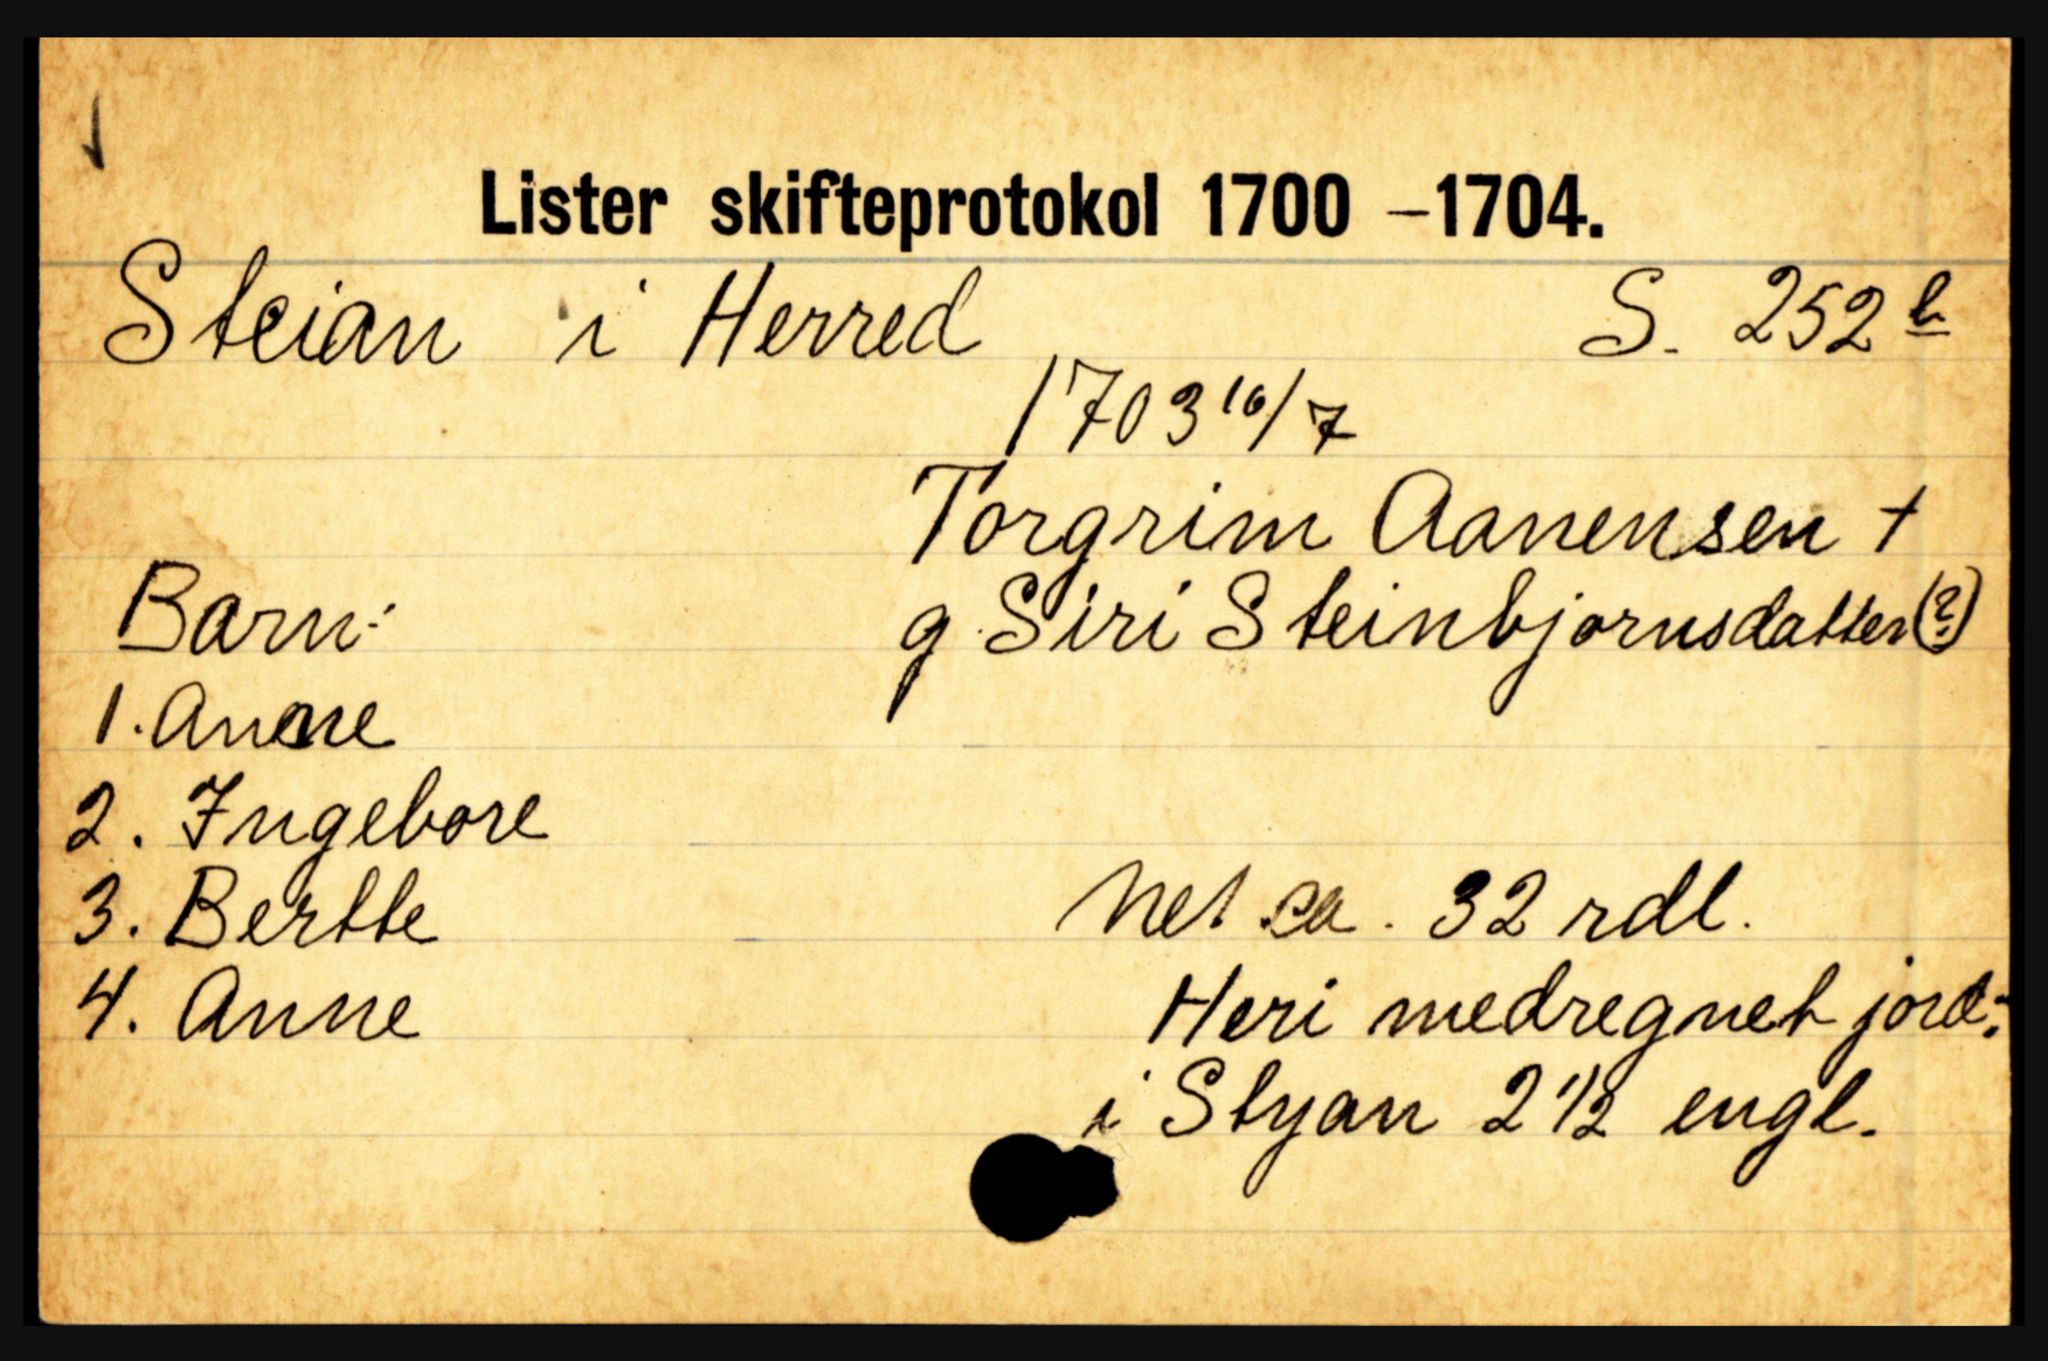 Lister skifteprotokol 1700 –1704.
Steian i Herred S. 252 b
1703 16/7
Torgrim Aanensen +
g. Siri Steinbjornsdatter (?)
Barn:
1. Anne
2. Ingebore
3. Bertte
4. Anne
Net ca. 32 rdl.
Heri medregnet jord:
i Styan 2 1/2 engl.